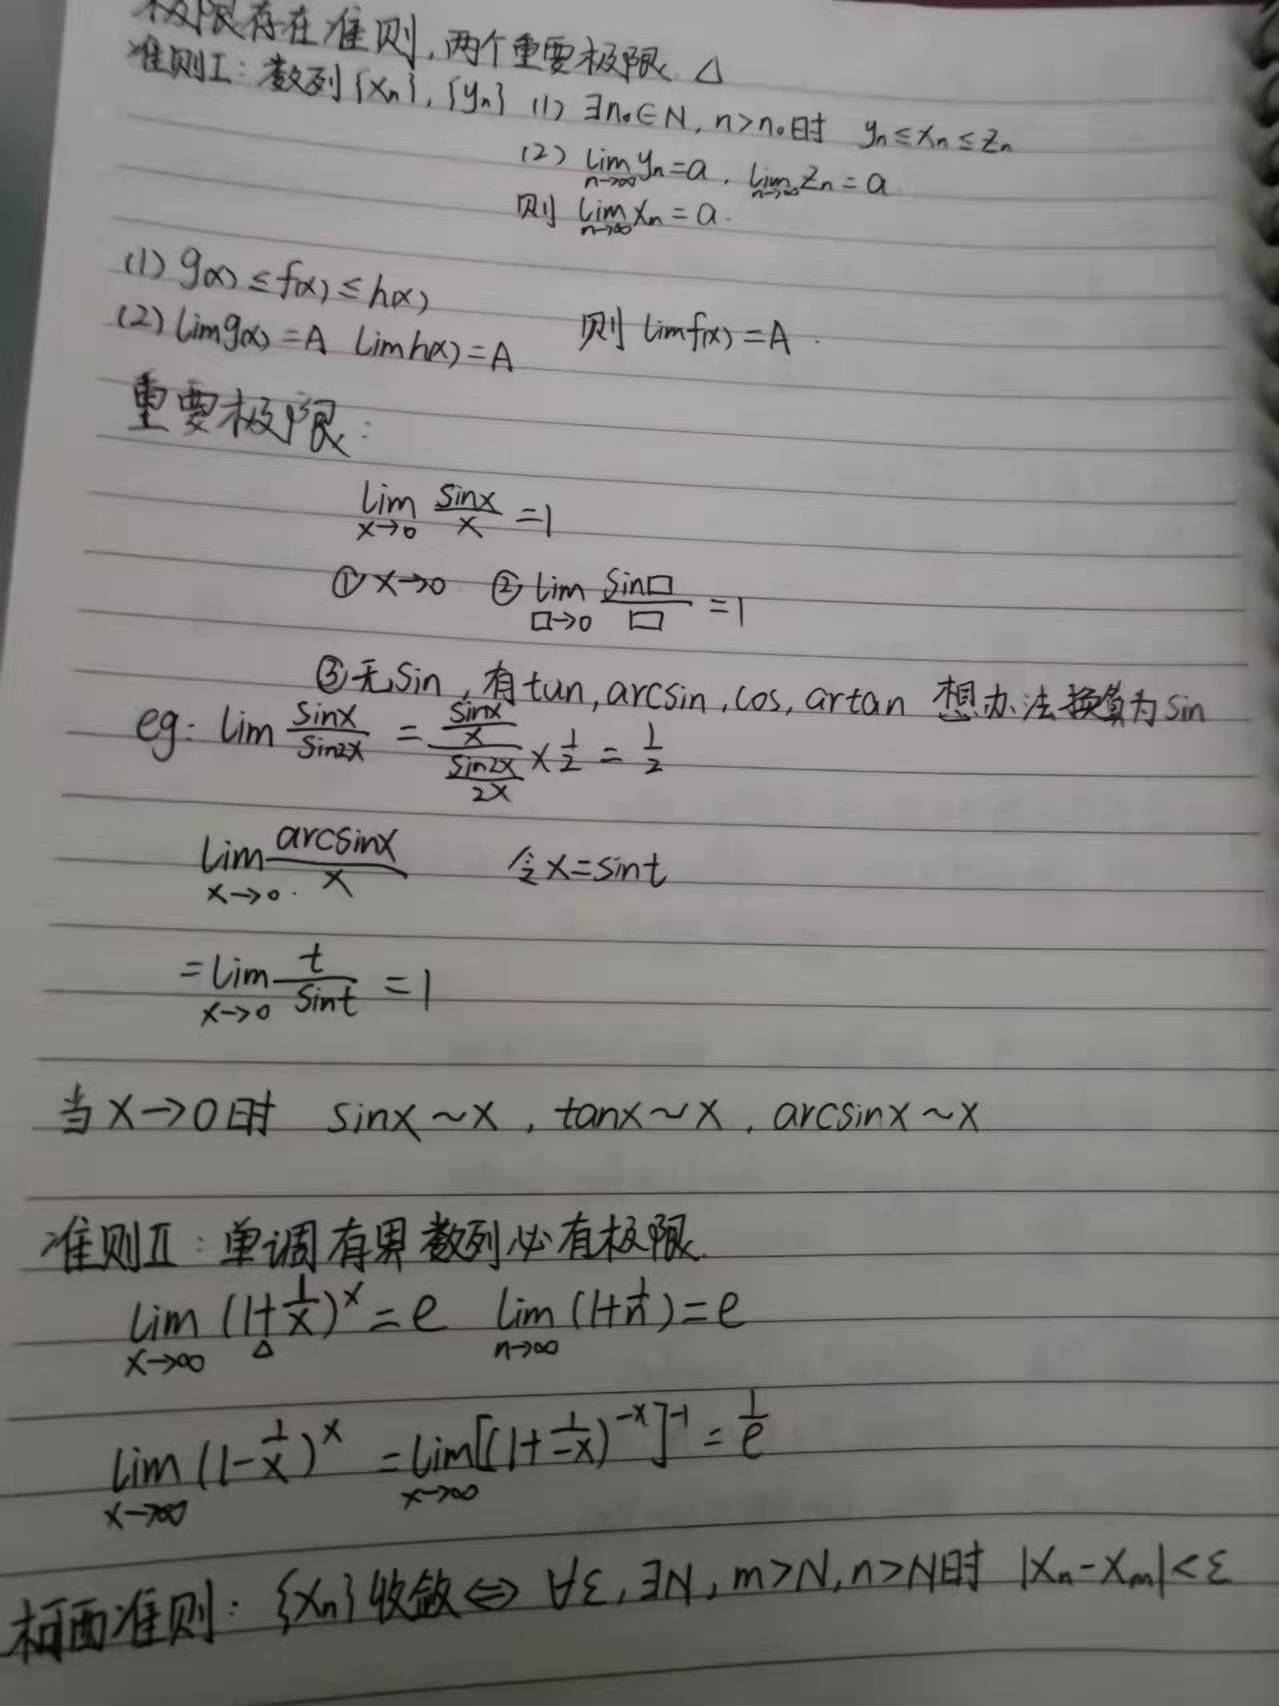 极限存在准则,两个重要极限 △
准则I: 数列{xₙ},{yₙ} (1) ∃n₀∈N, n>n₀时 yₙ≤xₙ≤zₙ
(2) lim_{n→∞} yₙ=a, lim_{n→∞} zₙ=a
则 lim_{n→∞} xₙ=a.
(1) g(x)≤f(x)≤h(x)
(2) lim g(x)=A lim h(x)=A 则 lim f(x)=A.
重要极限:
lim_{x→0} sinx/x =1
① x→0 ② lim_{□→0} sin□/□ =1
③无sin,有tan,arcsin,cos,artan 想办法换算为sin
eg: lim sinx/sin2x = (sinx/x)/(sin2x/2x) × 1/2 = 1/2
lim_{x→0} arcsinx/x 令x=sint
=lim_{x→0} t/sint =1
当x→0时 sinx~x, tanx~x, arcsinx~x
准则II:单调有界数列必有极限.
lim_{x→∞} (1+1/x)^x=e lim_{n→∞} (1+1/n)=e
△
lim_{x→∞} (1-1/x)^x =lim_{x→∞} [(1+1/-x)^{-x}]^{-1} = 1/e
柯西准则: {xₙ}收敛⇔ ∀ε,∃N, m>N,n>N时 |xₙ-xₘ|<ε